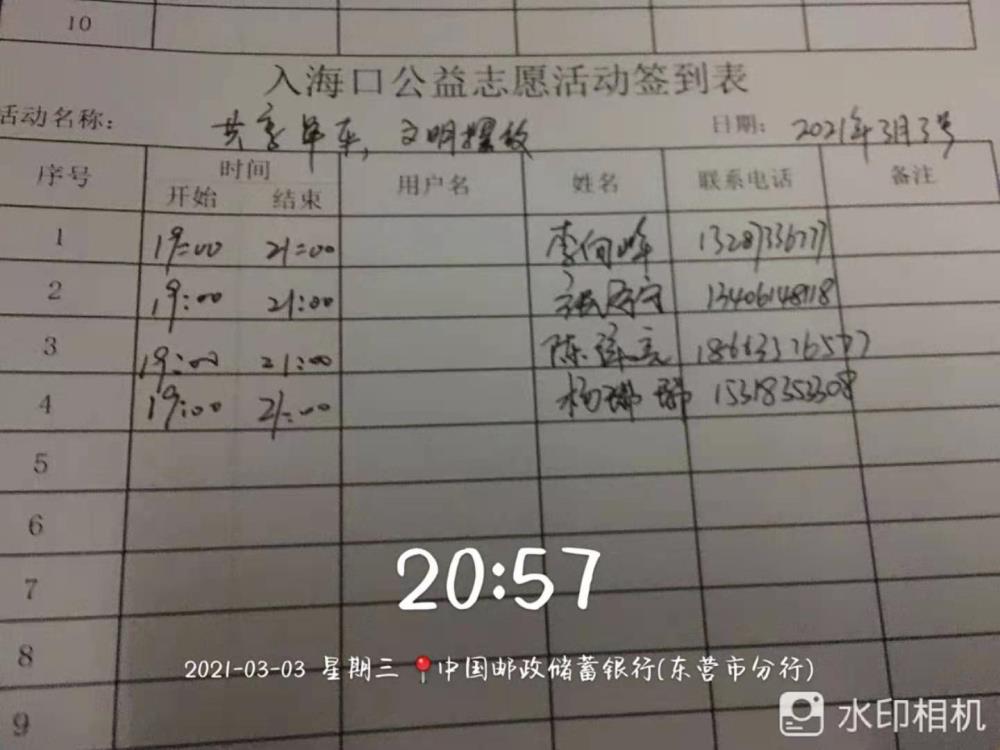 10
入海口公益志愿活动签到表
活动名称： 共享单车，文明摆放 日期： 2021年3月3号
序号 时间 用户名 姓名 联系电话 备注
开始 结束
1 19:00 21:00 李向峰 13287336777
2 19:00 21:00 13406148118
3 19:00 21:00 陈泽亮
4 19:00 21:00 杨娜娜 15318353308
5
6
7
8
9
20:57
2021-03-03 星期三 中国邮政储蓄银行(东营市分行)
水印相机